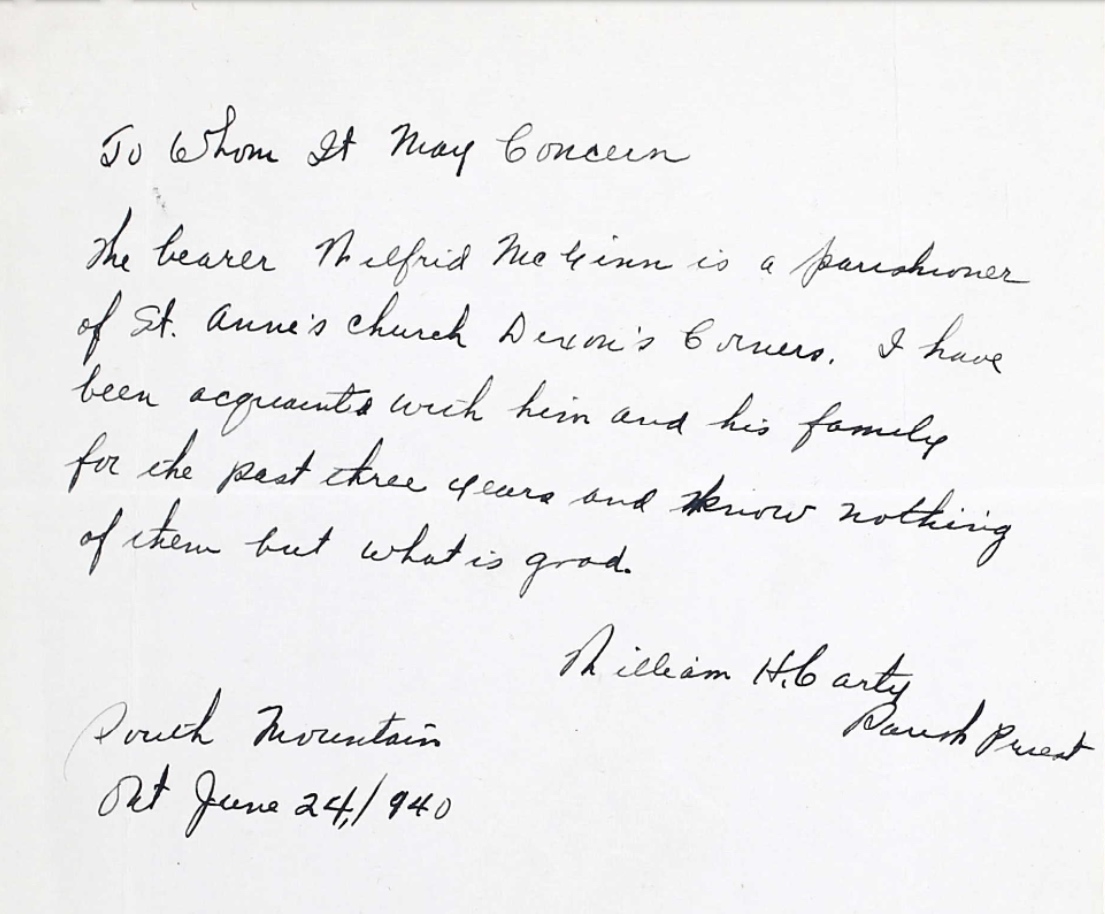 To Whom It May Concern
The bearer Wilfrid McGinn is a parishioner
of St. Anne's church Dixon's Corners. I have
been acquainted with him and his family
for the past three years and know nothing
of them but what is good.
William H. Carty
Parish Priest
South Mountain
Ont June 24, 1940